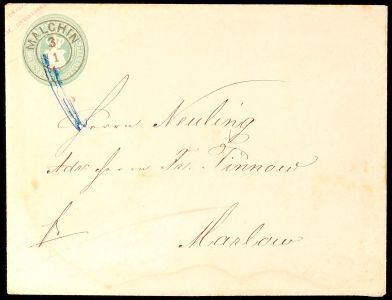 MALCHIN
3
1
Herrn Neuling
Adr. Herrn Fr. Tinnow
fr.
Marlow